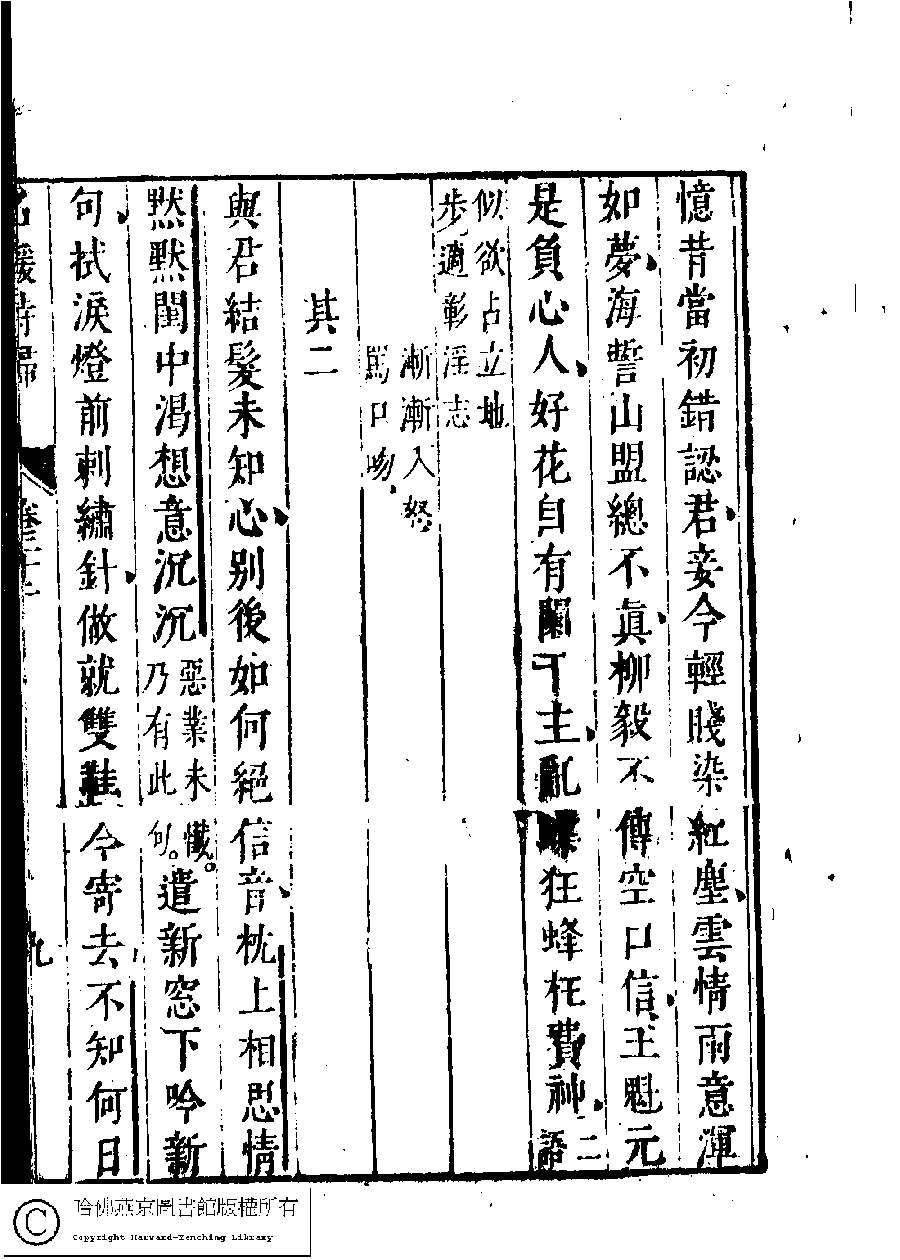 憶昔當初錯認君妾今輕賤染紅塵雲情雨意渾
如夢海誓山盟總不眞柳毅不傳空口信王魁元
是負心人好花自有闌干主亂蝶狂蜂枉費神二語
似欲占立地
步適彰淫志
漸漸入怒
罵口吻
其二
與君結髮未知心別後如何絕信音枕上相思情
黙黙閨中渴想意沉沉惡業未懺乃有此句。遣新窓下吟新
句拭淚燈前刺繡針做就雙鞋今寄去不知何日
名媛詩歸
九
哈佛燕京圖書館版權所有
Copyright Harvard-Yenching Library